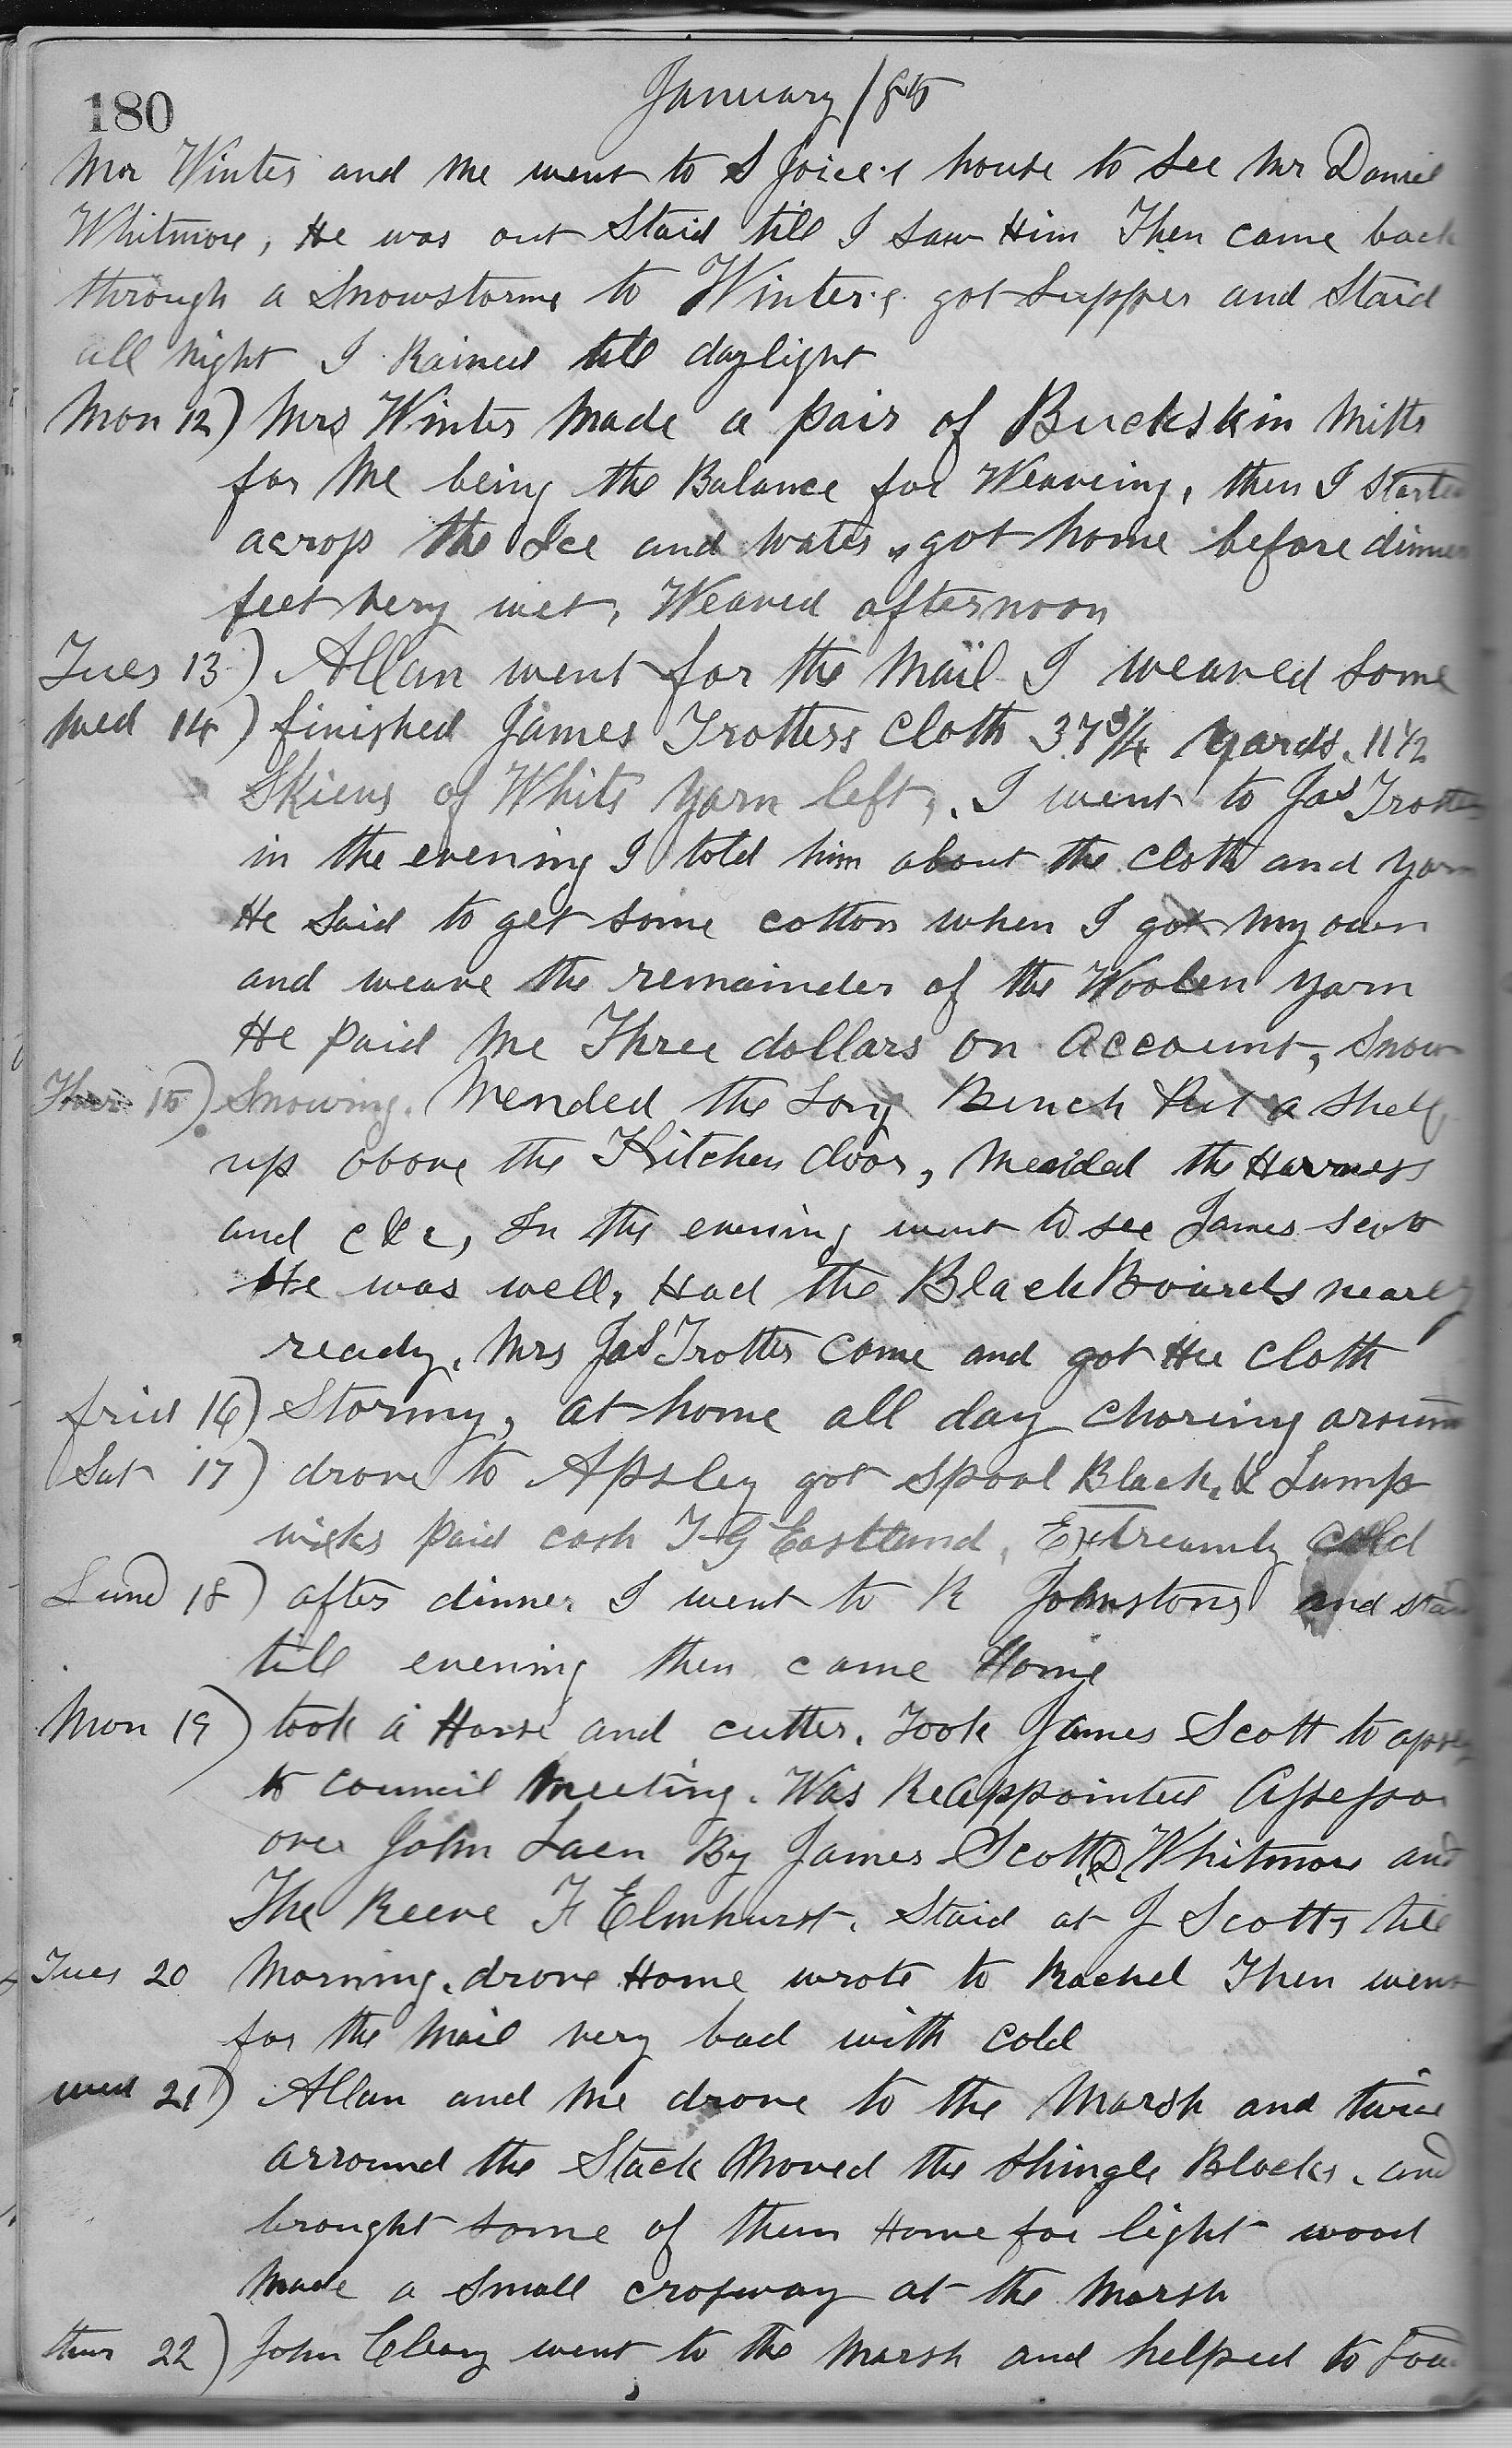 180
January /85
Mr Winter and Me went to S Joice's house to see Mr Daniel
Whitmore, He was out Staid till I saw Him Then came back
through a Snowstorme to Winter's got Supper and Staid
all night I Rained till daylight
Mon 12) Mrs Winter Made a pair of Buckskin Mitts
for Me being the Balance for Weaveing, then I Started
across the Ice and water got home before dinner
feet very wet, Weaved afternoon
Tues 13) Allan went for the Mail I weaved Some
Wed 14) finished James Trotters Cloth 37 3/4 yards, 11 1/2
Skiens of White Yarn left, I went to Jas Trotters
in the evening I told him about the cloth and yarn
He Said to get some cotton when I got my own
and weave the remainder of the Woolen yarn
He paid Me Three dollars on Account, Snow
Thur 15) Snowing. Mended the Long Bench Put a Shelf
up above the Kitchen door, Mended the Harness
and c&c, In the evening went to see James Scott
He was well, Had the Black Boards nearly
ready, Mrs Jas Trotter Came and got the cloth
frid 16) Stormy, at home all day choring around
Sat 17) drove to Apsley got Spool Black, & Lamp
wicks paid cash T G Eastland, Extreamly Cold
Sund 18) after dinner I went to R Johnstons and staid
till evening then came Home
Mon 19) took a Horse and cutter. Took James Scott to apsley
to council Meeting. Was ReAppointed Assessor
over John Laen By James Scott, D. Whitmore and
The Reeve F Elmhurst. Staid at J Scotts till
Tues 20 Morning. drove Home wrote to Rachel Then went
for the Mail very bad with cold
wed 21) Allan and Me drove to the Marsh and twice
arround the Stack Moved the Shingle Blocks, and
brought some of them Home for light wood
Made a Small crossway at the Marsh
thur 22) John Cleary went to the Marsh and helped to